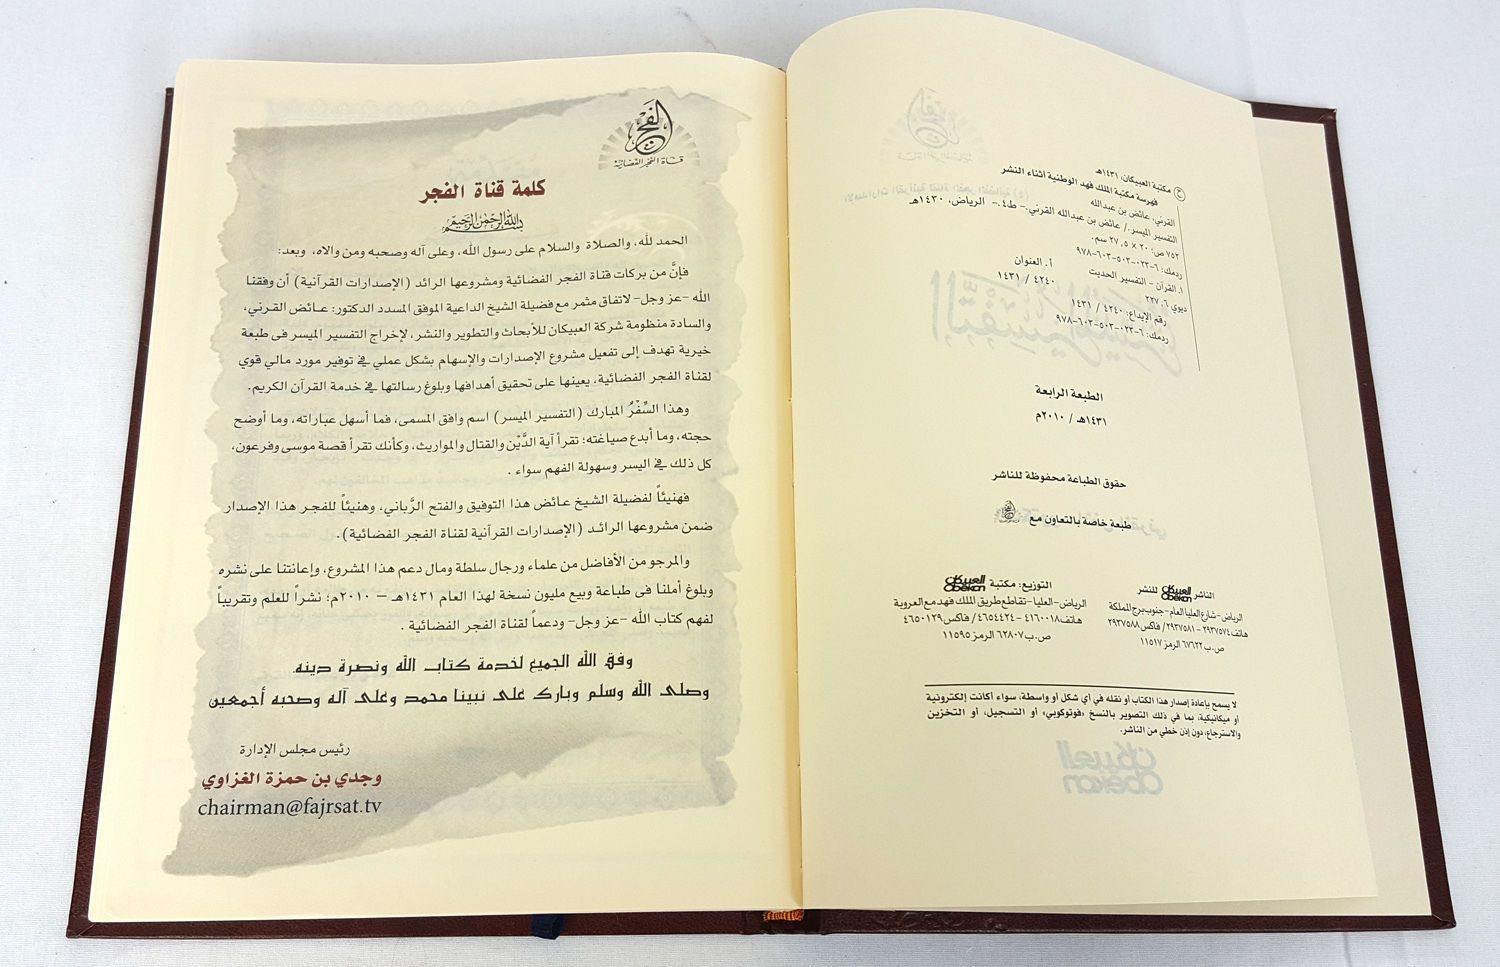 © مكتبة العبيكان، ١٤٣١هـ
فهرسة مكتبة الملك فهد الوطنية أثناء النشر
القرني، عائض بن عبدالله
التفسير الميسر./ عائض بن عبدالله القرني.- ط٤.- الرياض، ١٤٣٠هـ
٧٥٢ ص؛ ٢٠ × ٢٧,٥ سم.
ردمك: ٦-٠٢٣-٥٠٣-٦٠٣-٩٧٨
١. القرآن - التفسير الحديث أ. العنوان
ديوي ٢٢٧,٦ ٤٢٤٠ / ١٤٣١
رقم الإيداع: ٤٢٤٠ / ١٤٣١
ردمك: ٦-٠٢٣-٥٠٣-٦٠٣-٩٧٨
الطبعة الرابعة
١٤٣١هـ / ٢٠١٠م
حقوق الطباعة محفوظة للناشر
طبعة خاصة بالتعاون مع الفجر
الناشر العبيكان Obekan للنشر
الرياض - شارع العليا العام - جنوب برج المملكة
هاتف ٢٩٣٧٥٧٤ - ٢٩٣٧٥٨١ / فاكس ٢٩٣٧٥٨٨
ص.ب ٦٧٦٢٢ الرمز ١١٥١٧
التوزيع: مكتبة العبيكان Obekan
الرياض - العليا - تقاطع طريق الملك فهد مع العروبة
هاتف ٤١٦٠٠١٨ - ٤٦٥٤٤٢٤ / فاكس ٤٦٥٠١٢٩
ص.ب ٦٢٨٠٧ الرمز ١١٥٩٥
لا يسمح بإعادة إصدار هذا الكتاب أو نقله في أي شكل أو واسطة، سواء أكانت إلكترونية
أو ميكانيكية، بما في ذلك التصوير بالنسخ «فوتوكوبي» أو التسجيل، أو التخزين
والاسترجاع، دون إذن خطي من الناشر.
الفجر
قناة الفجر الفضائية
كلمة قناة الفجر
بسم الله الرحمن الرحيم
الحمد لله، والصلاة والسلام على رسول الله، وعلى آله وصحبه ومن والاه، وبعد:
فإنَّ من بركات قناة الفجر الفضائية ومشروعها الرائد (الإصدارات القرآنية) أن وفقنا
الله -عز وجل- لاتفاق مثمر مع فضيلة الشيخ الداعية الموفق المسدد الدكتور: عائض القرني،
والسادة منظومة شركة العبيكان للأبحاث والتطوير والنشر، لإخراج التفسير الميسر في طبعة
خيرية تهدف إلى تفعيل مشروع الإصدارات والإسهام بشكل عملي في توفير مورد مالي قوي
لقناة الفجر الفضائية، يعينها على تحقيق أهدافها وبلوغ رسالتها في خدمة القرآن الكريم.
وهذا السِّفْرُ المبارك (التفسير الميسر) اسم وافق المسمى، فما أسهل عباراته، وما أوضح
حجته، وما أبدع صياغته؛ تقرأ آية الدَّيْن والقتال والمواريث، وكأنك تقرأ قصة موسى وفرعون،
كل ذلك في اليسر وسهولة الفهم سواء .
فهنيئاً لفضيلة الشيخ عائض هذا التوفيق والفتح الرَّباني، وهنيئاً للفجر هذا الإصدار
ضمن مشروعها الرائد (الإصدارات القرآنية لقناة الفجر الفضائية).
والمرجو من الأفاضل من علماء ورجال سلطة ومال دعم هذا المشروع، وإعانتنا على نشره
وبلوغ أملنا في طباعة وبيع مليون نسخة لهذا العام ١٤٣١هـ – ٢٠١٠م؛ نشراً للعلم وتقريباً
لفهم كتاب الله -عز وجل- ودعماً لقناة الفجر الفضائية .
وفق الله الجميع لخدمة كتاب الله ونصرة دينه.
وصلى الله وسلم وبارك على نبينا محمد وعلى آله وصحبه أجمعين
رئيس مجلس الإدارة
وجدي بن حمزة الغزاوي
chairman@fajrsat.tv